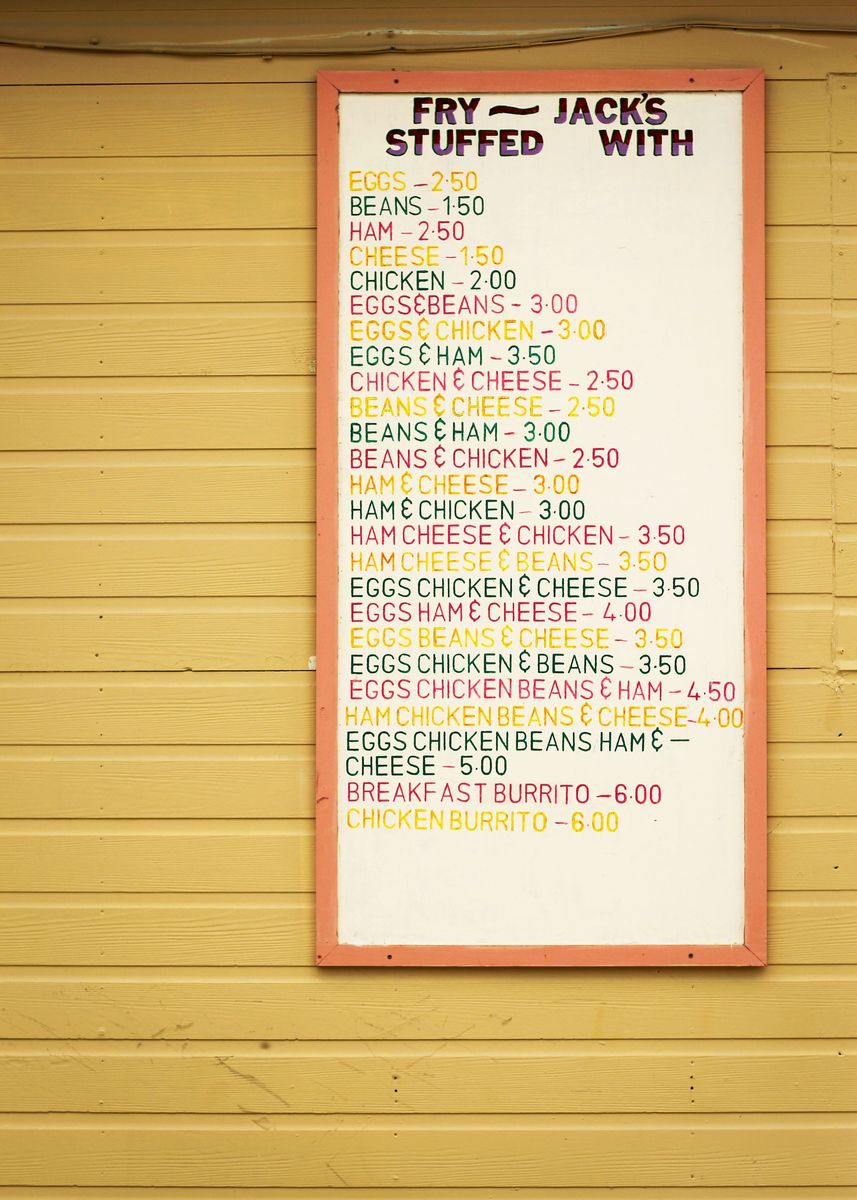 FRY ~ JACK'S
STUFFED WITH
EGGS - 2.50
BEANS - 1.50
HAM - 2.50
CHEESE - 1.50
CHICKEN - 2.00
EGGS & BEANS - 3.00
EGGS & CHICKEN - 3.00
EGGS & HAM - 3.50
CHICKEN & CHEESE - 2.50
BEANS & CHEESE - 2.50
BEANS & HAM - 3.00
BEANS & CHICKEN - 2.50
HAM & CHEESE - 3.00
HAM & CHICKEN - 3.00
HAM CHEESE & CHICKEN - 3.50
HAM CHEESE & BEANS - 3.50
EGGS CHICKEN & CHEESE - 3.50
EGGS HAM & CHEESE - 4.00
EGGS BEANS & CHEESE - 3.50
EGGS CHICKEN & BEANS - 3.50
EGGS CHICKEN BEANS & HAM - 4.50
HAM CHICKEN BEANS & CHEESE - 4.00
EGGS CHICKEN BEANS HAM & —
CHEESE - 5.00
BREAKFAST BURRITO - 6.00
CHICKEN BURRITO - 6.00